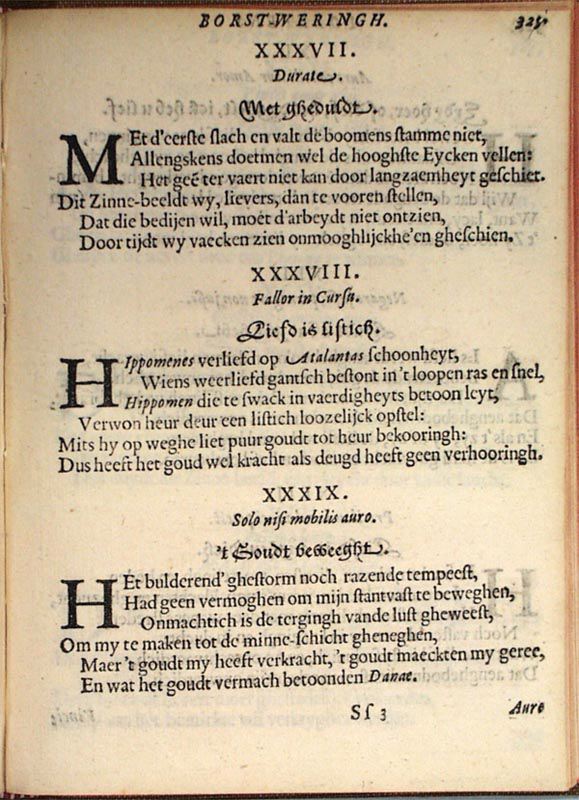 BORST-WERINGH. 325
XXXVII.
Durate.
Met gheduldt.
MEt d'eerste slach en valt de boomens stamme niet,
Allengskens doetmen wel de hooghste Eycken vellen:
Het geẽ ter vaert niet kan door langzaemheyt geschiet.
Dit Zinne-beeldt wy, lievers, dan te vooren stellen,
Dat die bedijen wil, moet d'arbeydt niet ontzien,
Door tijdt wy vaecken zien onmooghlijckhe'en gheschien.
XXXVIII.
Fallor in Cursu.
Liefd is listich.
HIppomenes verliefd op Atalantas schoonheyt,
Wiens weerliefd gantsch bestont in 't loopen ras en snel,
Hippomen die te swack in vaerdigheyts betoon leyt,
Verwon heur deur een listich loozelijck opstel:
Mits hy op weghe liet puur goudt tot heur bekooringh:
Dus heeft het goud wel kracht als deugd heeft geen verhooringh.
XXXIX.
Solo nisi mobilis auro.
't Goudt beweeght.
HEt bulderend' ghestorm noch razende tempeest,
Had geen vermoghen om mijn stantvast te beweghen,
Onmachtich is de tergingh vande lust gheweest,
Om my te maken tot de minne-schicht gheneghen,
Maer 't goudt my heeft verkracht, 't goudt maeckten my geree,
En wat het goudt vermach betoonden Danae.
Sſ 3 Aure